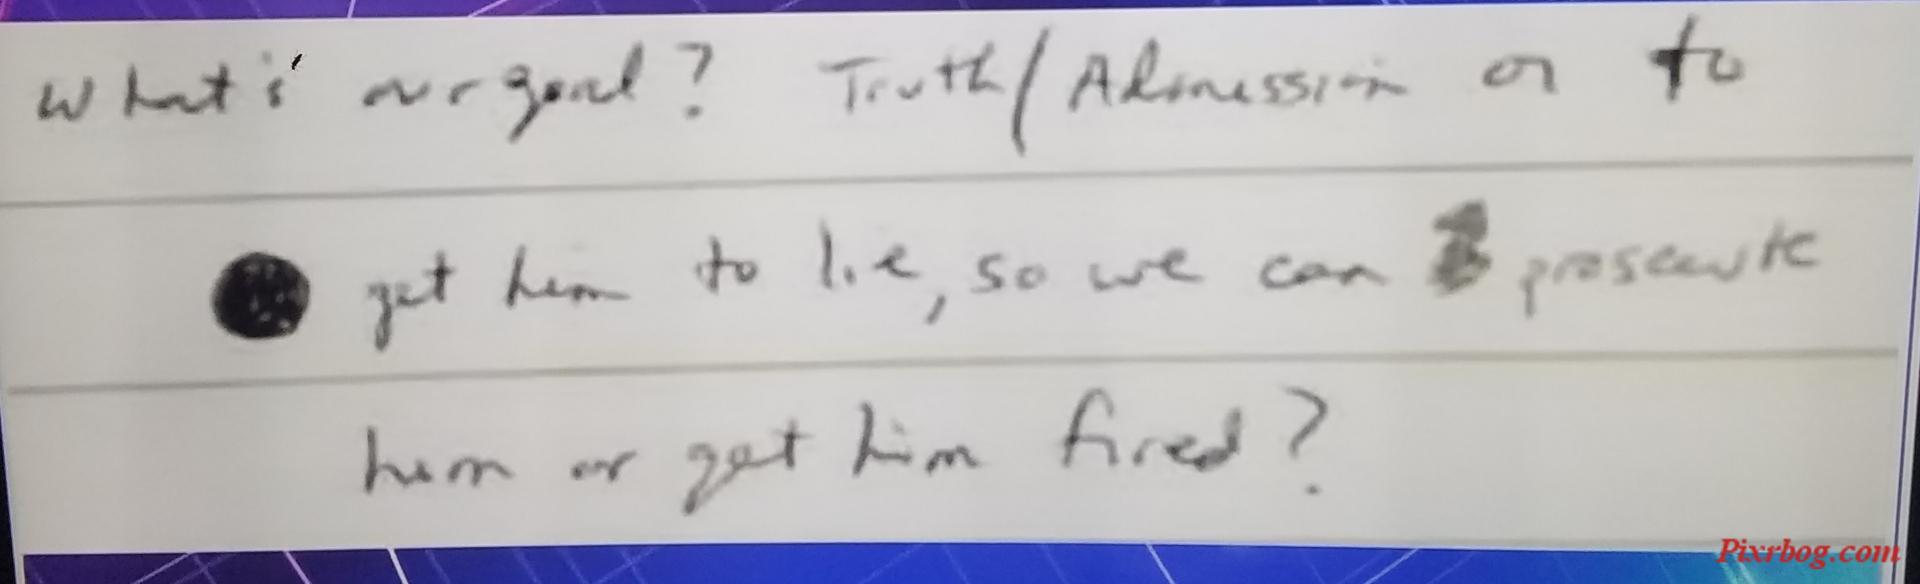 What's our goal? Truth/Admission or to
get him to lie, so we can prosecute
him or get him fired?
Pixrbog.com